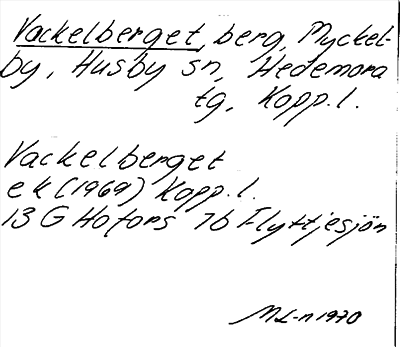 Vackelberget, berg, Myckel-
by, Husby sn, Hedemora
tg, Kopp.l.
Vackelberget
ek (1969) Kopp.l.
13 G Hofors 7b Flyttjesjön
ML-n 1970